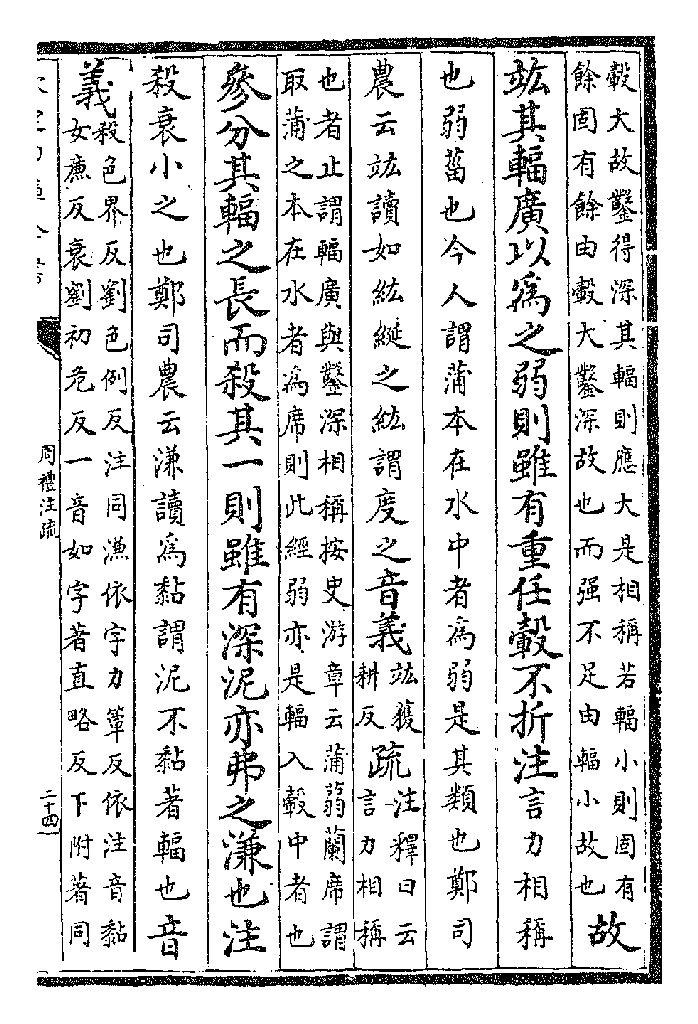 轂大故鑿得深其輻則應大是相稱若輻小則固有
餘固有餘由轂大鑿深故也而强不足由輻小故也故
竑其輻廣以為之弱則雖有重任轂不折注言力相稱
也弱菑也今人謂蒲本在水中者為弱是其類也鄭司
農云竑讀如紘綖之紘謂度之音義竑獲
耕反疏注釋曰云
言力相稱
也者止謂輻廣與鑿深相稱按史游章云蒲蒻蘭席謂
取蒲之本在水者為席則此經弱亦是輻入轂中者也
參分其輻之長而殺其一則雖有深泥亦弗之溓也注
殺衰小之也鄭司農云溓讀為黏謂泥不黏著輻也音
義殺色界反劉色例反注同溓依字力簟反依注音黏
女廉反衰劉初危反一音如字著直略反下附著同
周禮注疏
二十四